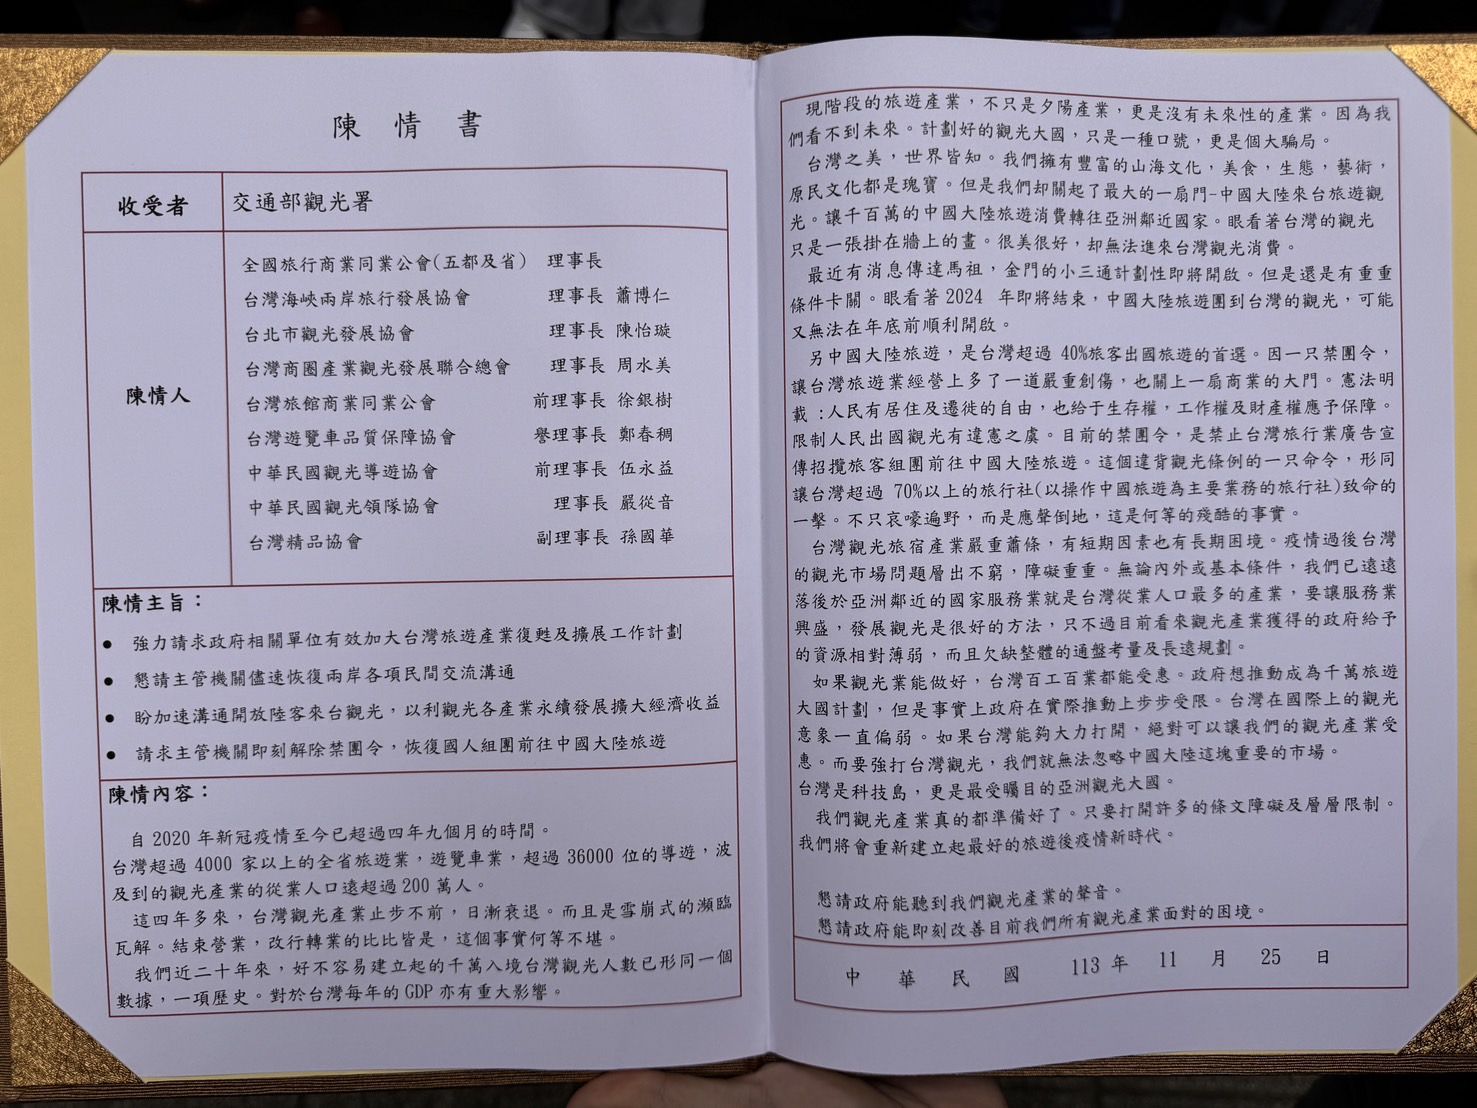 陳情書
收受者 交通部觀光署
陳情人
全國旅行商業同業公會(五都及省) 理事長
台灣海峽兩岸旅行發展協會 理事長 蕭博仁
台北市觀光發展協會 理事長 陳怡璇
台灣商圈產業觀光發展聯合總會 理事長 周水美
台灣旅館商業同業公會 前理事長 徐銀樹
台灣遊覽車品質保障協會 譽理事長 鄭春稠
中華民國觀光導遊協會 前理事長 伍永益
中華民國觀光領隊協會 理事長 嚴從音
台灣精品協會 副理事長 孫國華
陳情主旨：
● 強力請求政府相關單位有效加大台灣旅遊產業復甦及擴展工作計劃
● 懇請主管機關儘速恢復兩岸各項民間交流溝通
● 盼加速溝通開放陸客來台觀光，以利觀光各產業永續發展擴大經濟收益
● 請求主管機關即刻解除禁團令，恢復國人組團前往中國大陸旅遊
陳情內容：
自 2020 年新冠疫情至今已超過四年九個月的時間。
台灣超過 4000 家以上的全省旅遊業，遊覽車業，超過 36000 位的導遊，波
及到的觀光產業的從業人口遠超過 200 萬人。
這四年多來，台灣觀光產業止步不前，日漸衰退。而且是雪崩式的瀕臨
瓦解。結束營業，改行轉業的比比皆是，這個事實何等不堪。
我們近二十年來，好不容易建立起的千萬入境台灣觀光人數已形同一個
數據，一項歷史。對於台灣每年的 GDP 亦有重大影響。
現階段的旅遊產業，不只是夕陽產業，更是沒有未來性的產業。因為我
們看不到未來。計劃好的觀光大國，只是一種口號，更是個大騙局。
台灣之美，世界皆知。我們擁有豐富的山海文化，美食，生態，藝術，
原民文化都是瑰寶。但是我們卻關起了最大的一扇門-中國大陸來台旅遊觀
光。讓千百萬的中國大陸旅遊消費轉往亞洲鄰近國家。眼看著台灣的觀光
只是一張掛在牆上的畫。很美很好，卻無法進來台灣觀光消費。
最近有消息傳達馬祖，金門的小三通計劃性即將開啟。但是還是有重重
條件卡關。眼看著 2024 年即將結束，中國大陸旅遊團到台灣的觀光，可能
又無法在年底前順利開啟。
另中國大陸旅遊，是台灣超過 40%旅客出國旅遊的首選。因一只禁團令，
讓台灣旅遊業經營上多了一道嚴重創傷，也關上一扇商業的大門。憲法明
載 :人民有居住及遷徙的自由，也給于生存權，工作權及財產權應予保障。
限制人民出國觀光有違憲之虞。目前的禁團令，是禁止台灣旅行業廣告宣
傳招攬旅客組團前往中國大陸旅遊。這個違背觀光條例的一只命令，形同
讓台灣超過 70%以上的旅行社(以操作中國旅遊為主要業務的旅行社)致命的
一擊。不只哀嚎遍野，而是應聲倒地，這是何等的殘酷的事實。
台灣觀光旅宿產業嚴重蕭條，有短期因素也有長期困境。疫情過後台灣
的觀光市場問題層出不窮，障礙重重。無論內外或基本條件，我們已遠遠
落後於亞洲鄰近的國家服務業就是台灣從業人口最多的產業，要讓服務業
興盛，發展觀光是很好的方法，只不過目前看來觀光產業獲得的政府給予
的資源相對薄弱，而且欠缺整體的通盤考量及長遠規劃。
如果觀光業能做好，台灣百工百業都能受惠。政府想推動成為千萬旅遊
大國計劃，但是事實上政府在實際推動上步步受限。台灣在國際上的觀光
意象一直偏弱。如果台灣能夠大力打開，絕對可以讓我們的觀光產業受
惠。而要強打台灣觀光，我們就無法忽略中國大陸這塊重要的市場。
台灣是科技島，更是最受矚目的亞洲觀光大國。
我們觀光產業真的都準備好了。只要打開許多的條文障礙及層層限制。
我們將會重新建立起最好的旅遊後疫情新時代。
懇請政府能聽到我們觀光產業的聲音。
懇請政府能即刻改善目前我們所有觀光產業面對的困境。
中華民國 113 年 11 月 25 日